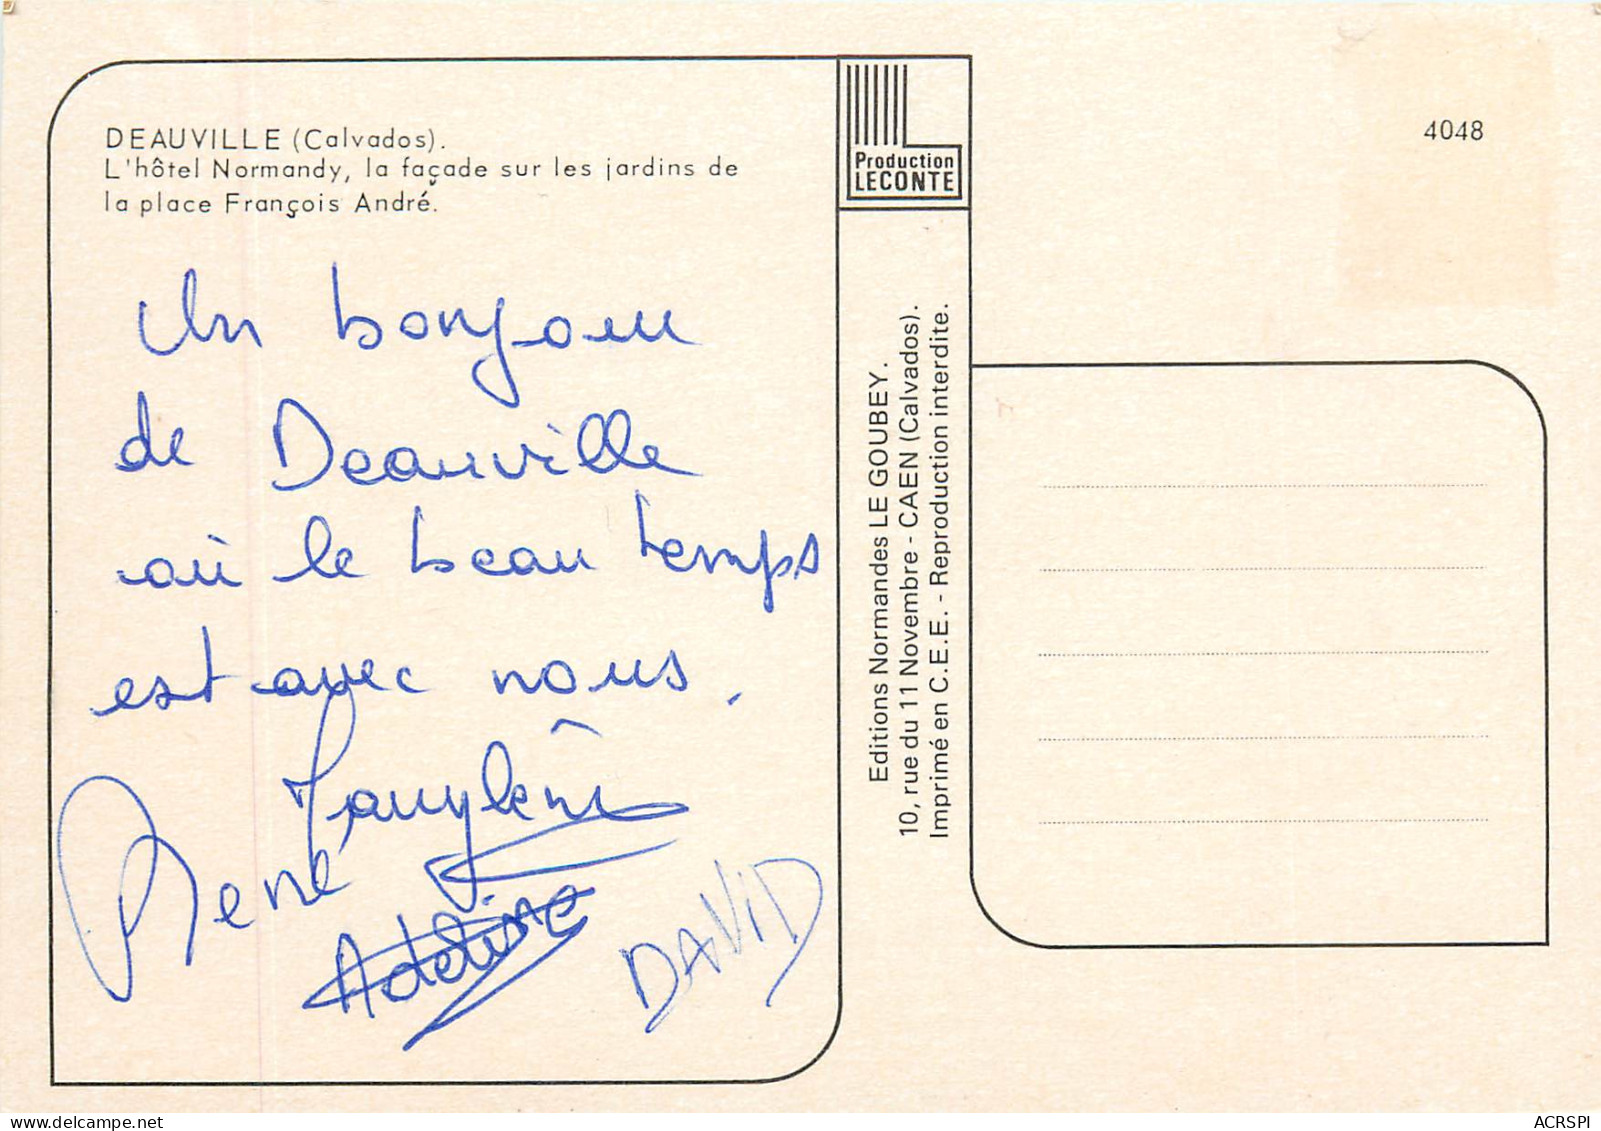 DEAUVILLE (Calvados).
L'hôtel Normandy, la façade sur les jardins de
la place François André.
Un bonjour
de Deauville
où le beau temps
est avec nous.
René
Adeline
DAVID
Production
LECONTE
Editions Normandes LE GOUBEY.
10, rue du 11 Novembre - CAEN (Calvados).
Imprimé en C.E.E. - Reproduction interdite.
4048
ACRSPI